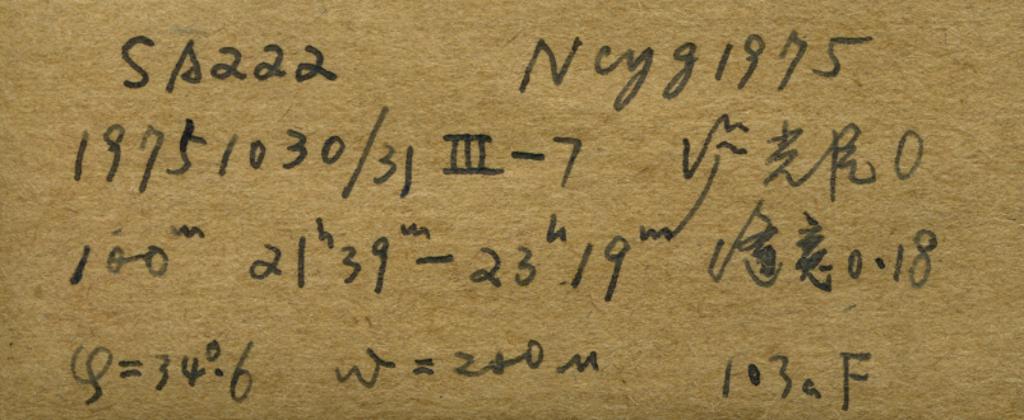 SA222 Ncyg1975
1975 10 30/31 III-7 光尾0
100ᵐ 21ʰ39ᵐ-23ʰ19ᵐ 0.18
φ=34°.6 w=200μ 103aF